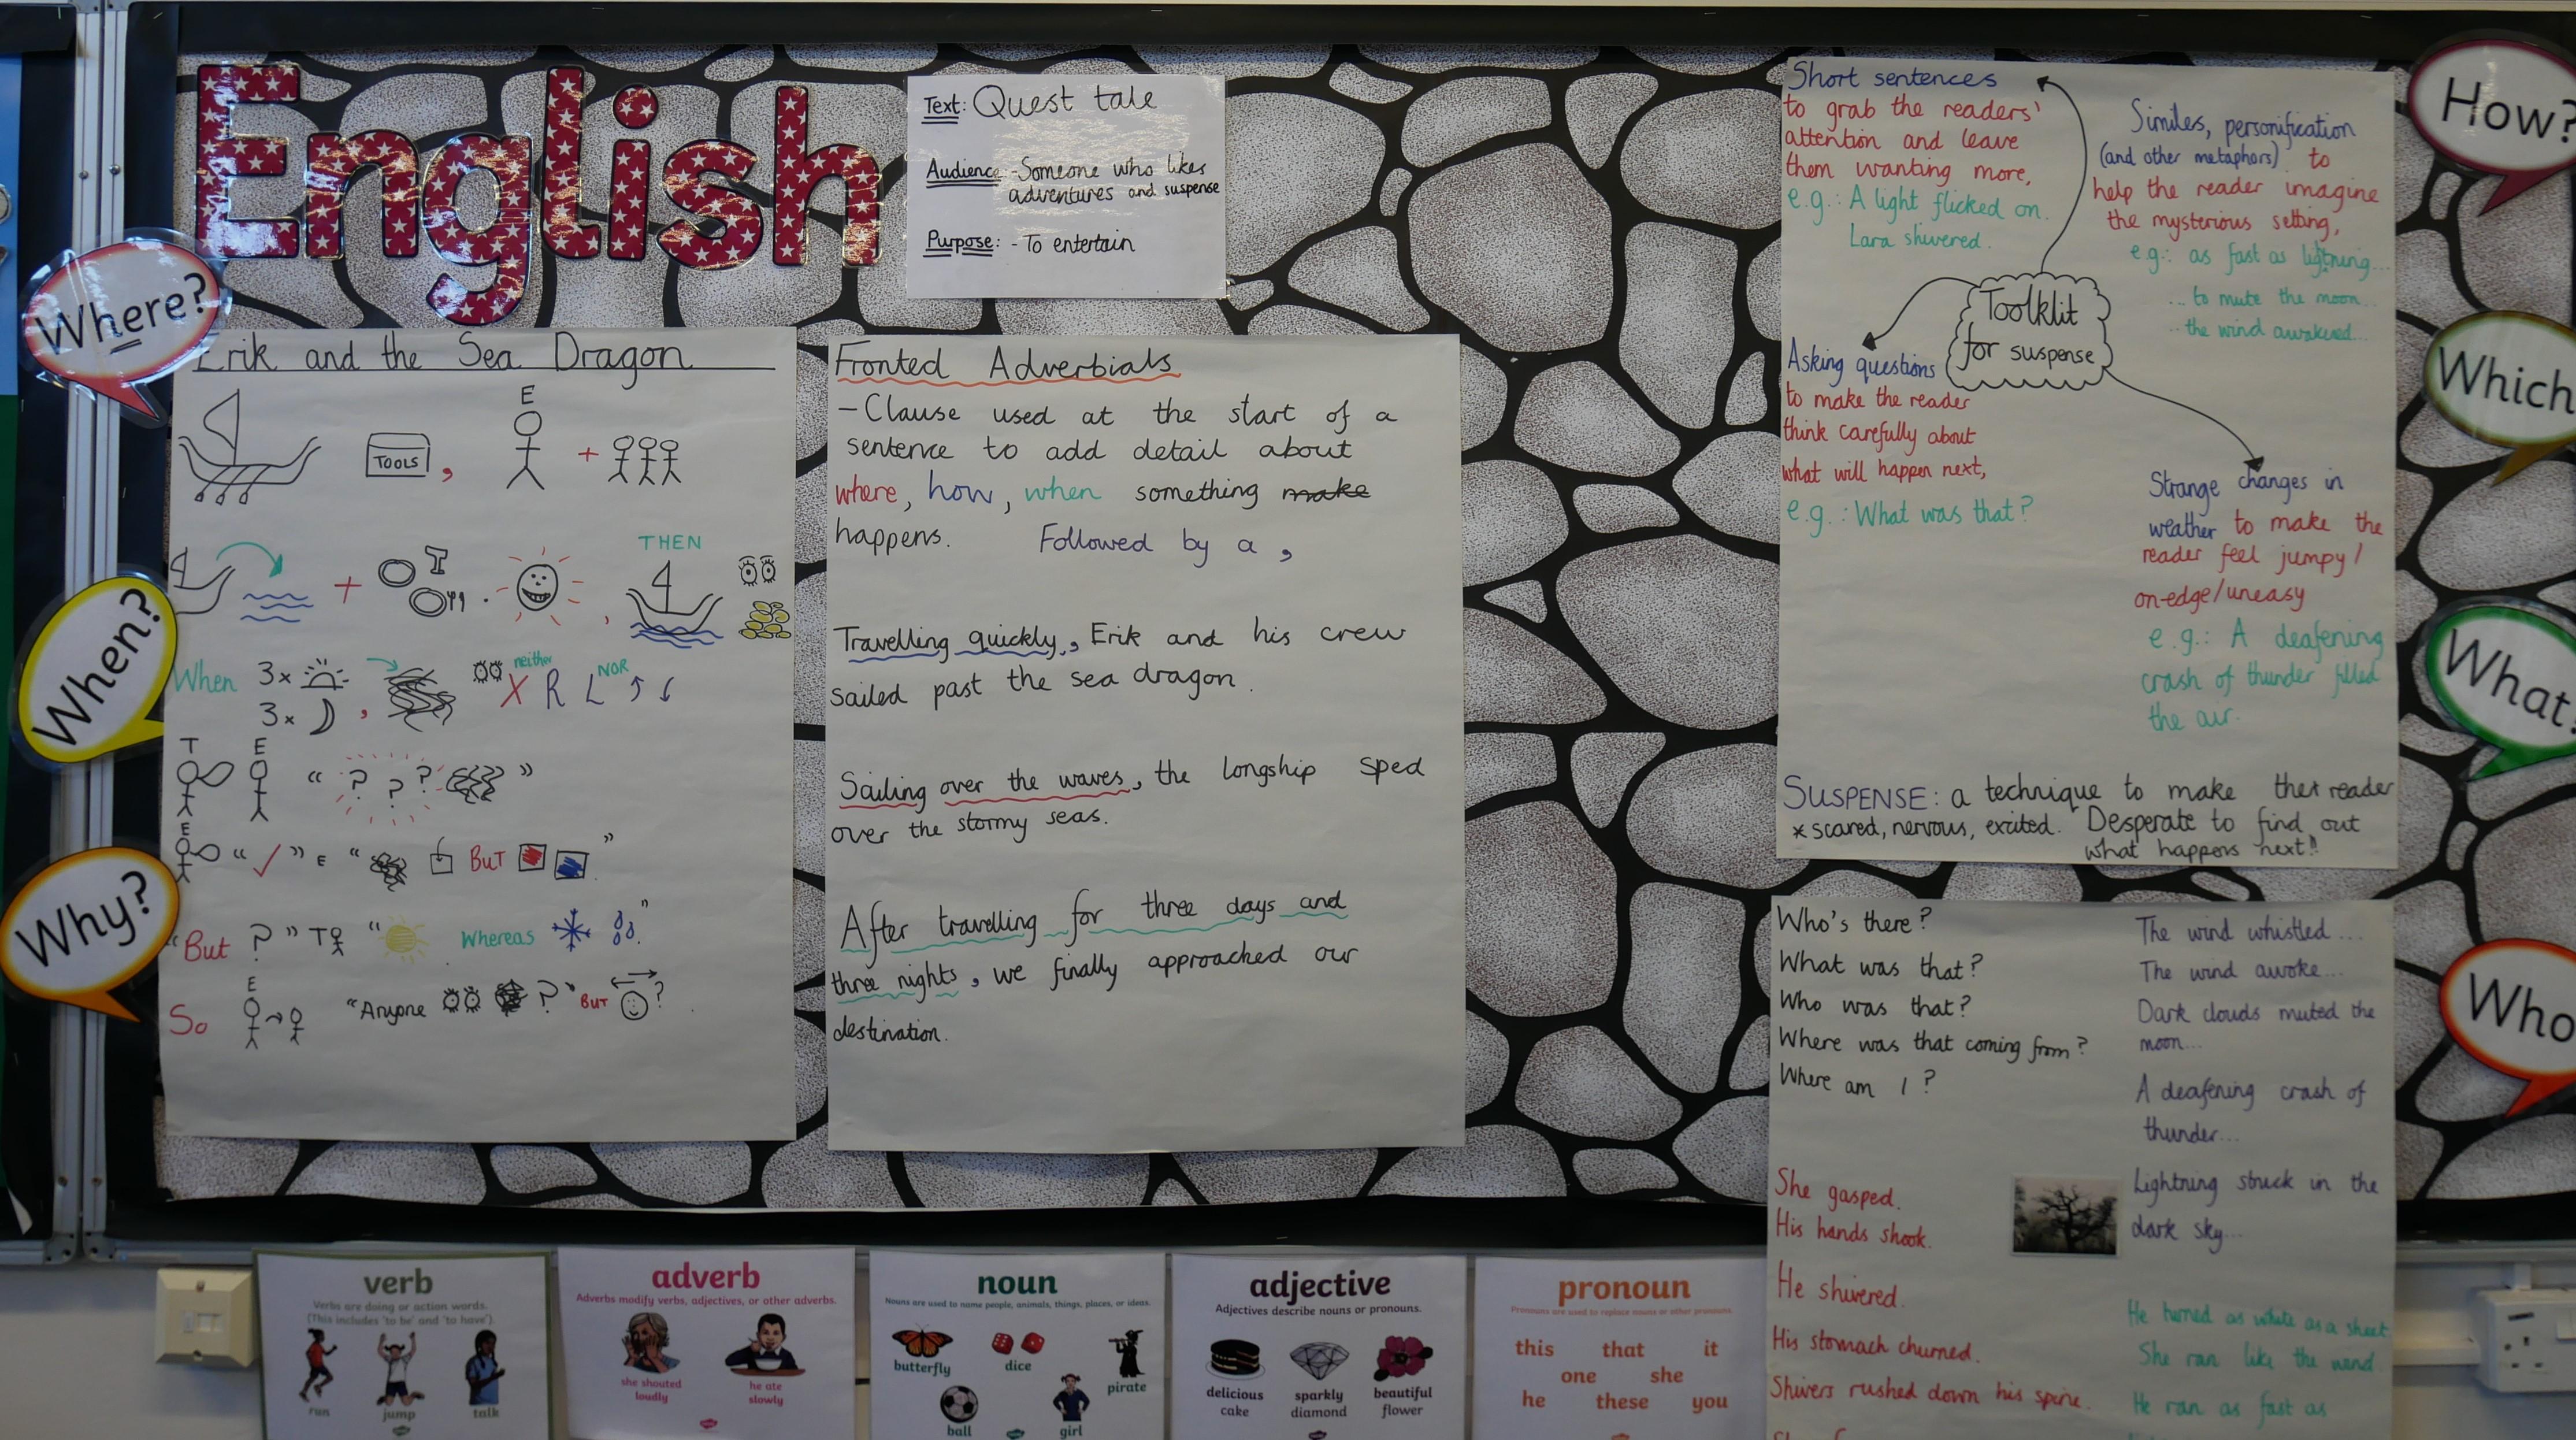 English
Text: Quest tale
Audience - Someone who likes
adventures and suspense
Purpose: - To entertain
Where?
When?
Why?
How?
Which
What
Who
Erik and the Sea Dragon
E
TOOLS, +
+ . , THEN
When 3x neither NOR
3x , X R L
T E
" ? ? ? "
E
" ✓ " E " BUT "
"But ? " T " Whereas "
E
So "Anyone ? " BUT ?
Fronted Adverbials
- Clause used at the start of a
sentence to add detail about
where, how, when something make
happens. Followed by a ,
Travelling quickly, Erik and his crew
sailed past the sea dragon.
Sailing over the waves, the longship sped
over the stormy seas.
After travelling for three days and
three nights, we finally approached our
destination.
Short sentences
to grab the readers'
attention and leave
them wanting more,
e.g.: A light flicked on.
Lara shivered.
Similes, personification
(and other metaphors) to
help the reader imagine
the mysterious setting,
e.g: as fast as lightning...
... to mute the moon...
.. the wind awakened...
Toolklit
for suspense
Asking questions
to make the reader
think carefully about
what will happen next,
e.g.: What was that?
Strange changes in
weather to make the
reader feel jumpy/
on-edge/uneasy
e.g.: A deafening
crash of thunder filled
the air.
SUSPENSE: a technique to make reader
* scared, nervous, excited. Desperate to find out
what happens next!!
Who's there?
What was that?
Who was that?
Where was that coming from?
Where am I?
She gasped.
His hands shook.
He shivered.
His stomach churned.
Shivers rushed down his spine.
The wind whistled ...
The wind awoke...
Dark clouds muted the
moon...
A deafening crash of
thunder...
Lightning struck in the
dark sky...
He turned as white as a sheet
She ran like the wind
He ran as fast as
verb
Verbs are doing or action words.
(This includes 'to be' and 'to have')
run
jump
talk
adverb
Adverbs modify verbs, adjectives, or other adverbs.
she shouted
loudly
he ate
slowly
noun
Nouns are used to name people, animals, things, places, or ideas.
butterfly
dice
pirate
ball
girl
adjective
Adjectives describe nouns or pronouns.
delicious
cake
sparkly
diamond
beautiful
flower
pronoun
Pronouns are used to replace nouns or other pronouns.
this that it
one she
he these you